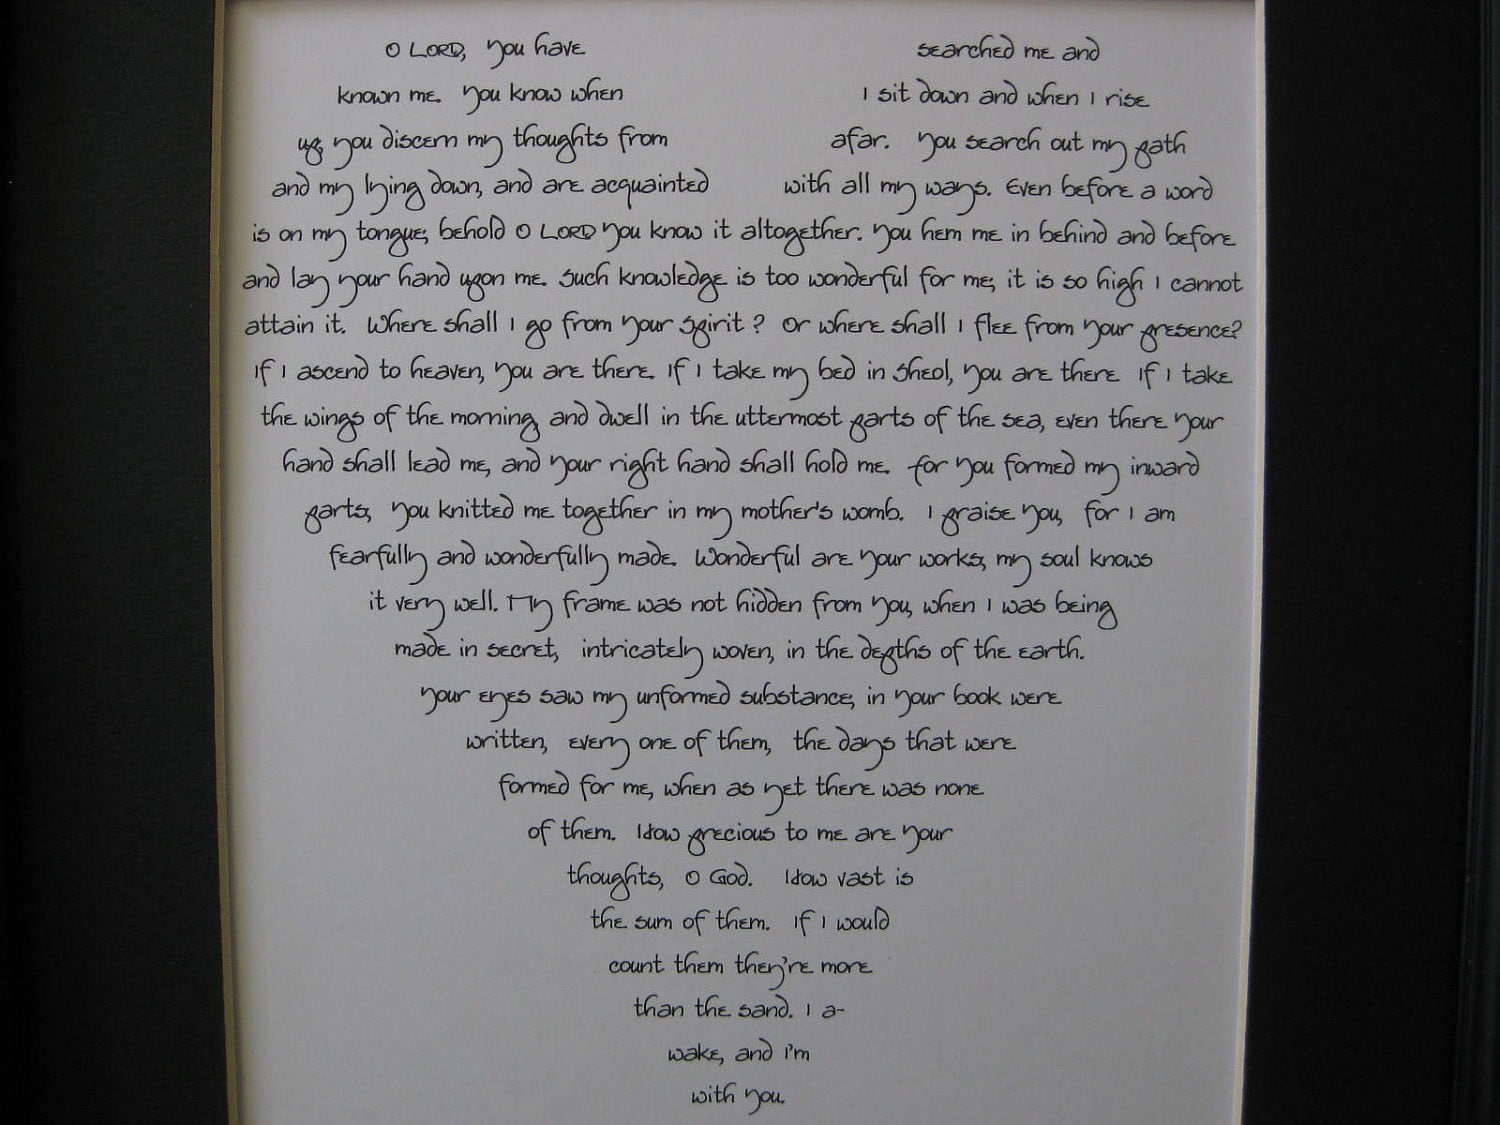 O LORD, You have searched me and
known me. You know when I sit down and when I rise
up, you discern my thoughts from afar. You search out my path
and my lying down, and are acquainted with all my ways. Even before a word
is on my tongue, behold O LORD You know it altogether. You hem me in behind and before
and lay your hand upon me. Such knowledge is too wonderful for me, it is so high I cannot
attain it. Where shall I go from Your Spirit? Or where shall I flee from Your presence?
If I ascend to heaven, You are there. If I take my bed in Sheol, You are there. If I take
the wings of the morning and dwell in the uttermost parts of the sea, even there Your
hand shall lead me, and Your right hand shall hold me. For You formed my inward
parts, You knitted me together in my mother's womb. I praise You, for I am
fearfully and wonderfully made. Wonderful are Your works, my soul knows
it very well. My frame was not hidden from You, when I was being
made in secret, intricately woven, in the depths of the earth.
Your eyes saw my unformed substance, in Your book were
written, every one of them, the days that were
formed for me, when as yet there was none
of them. How precious to me are Your
thoughts, O God. How vast is
the sum of them. If I would
count them they're more
than the sand. I a-
wake, and I'm
with You.